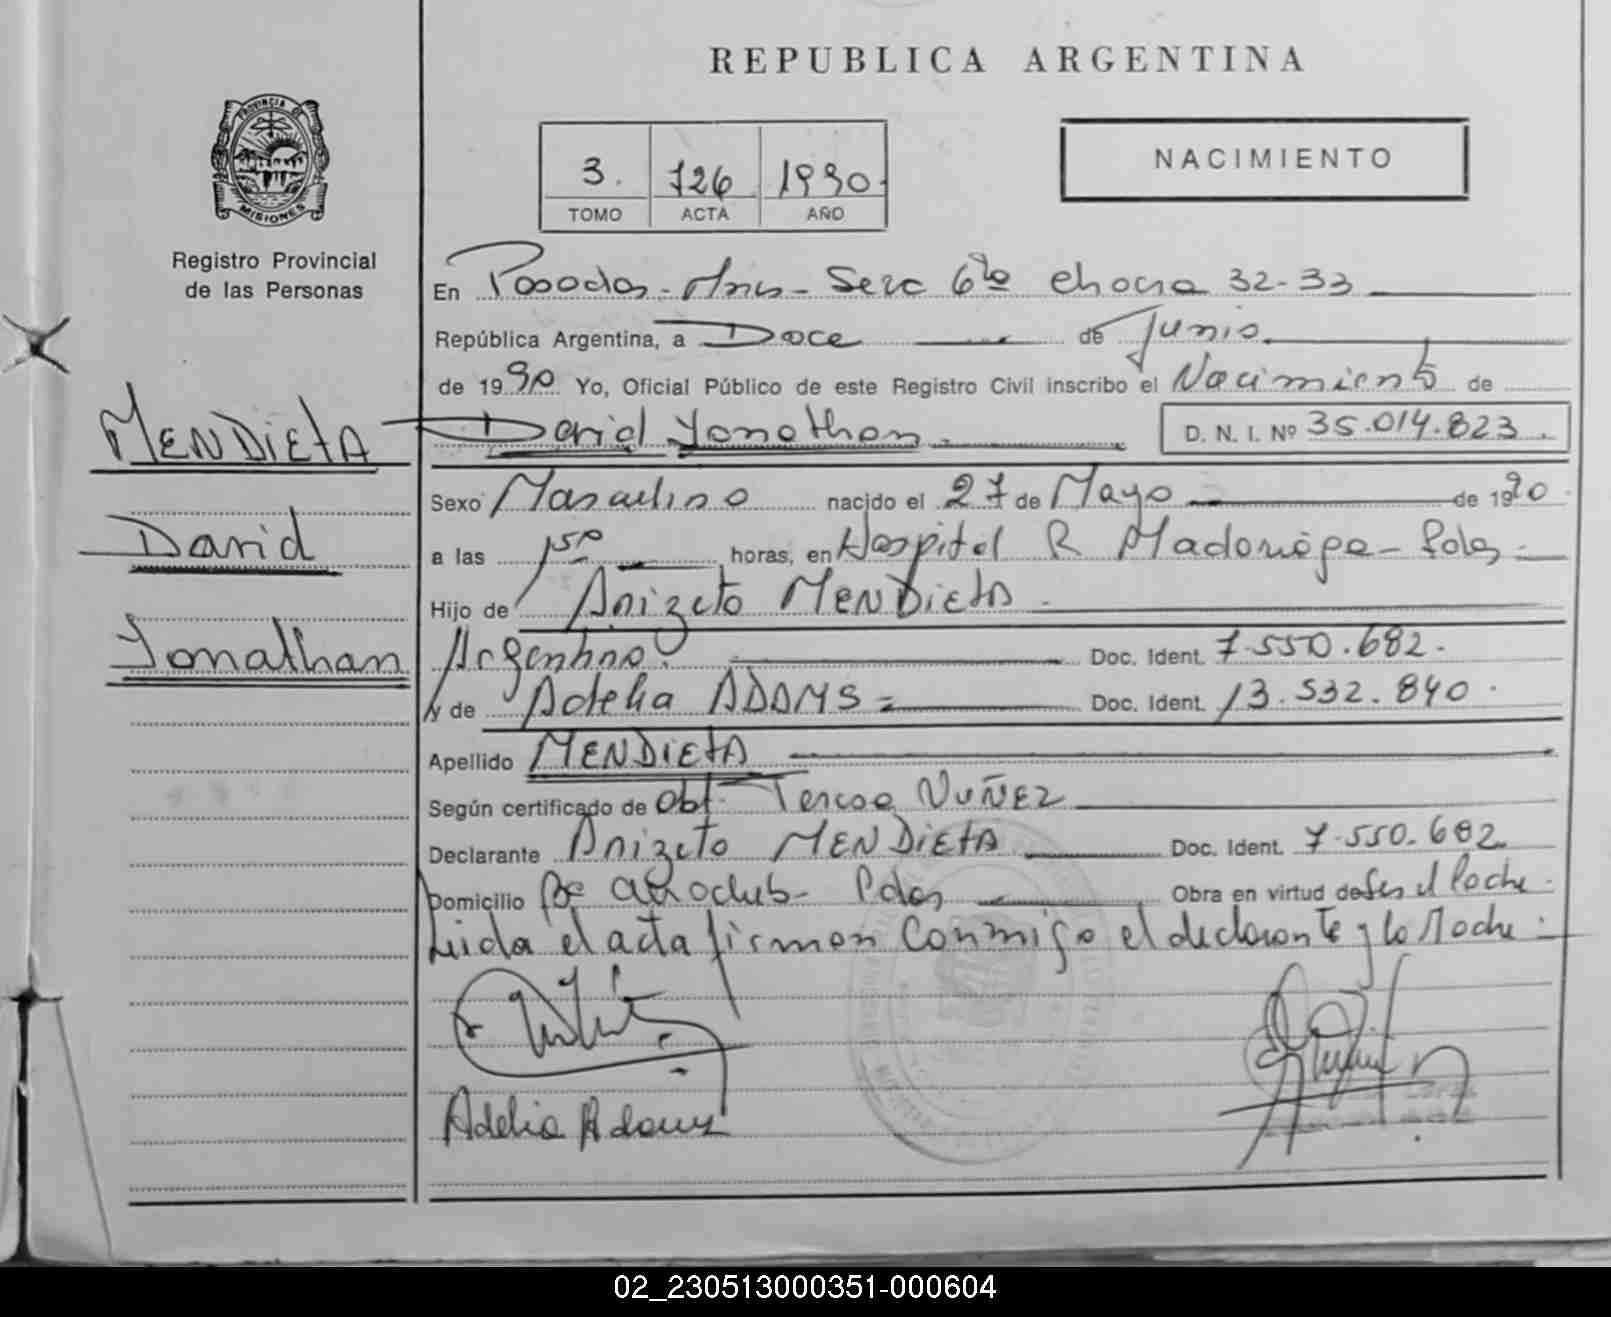 REPUBLICA ARGENTINA
PROVINCIA DE
MISIONES
Registro Provincial
de las Personas
3. 726 1990.
TOMO ACTA AÑO
NACIMIENTO
En Posadas - Mnes - Secc 6ta chacra 32-33
República Argentina, a Doce de Junio.
de 1990 Yo, Oficial Público de este Registro Civil inscribo el Nacimiento de
MENDIETA
David Yonathan. D. N. I. Nº 35.014.823.
Sexo Masculino nacido el 27 de Mayo de 1990
David
a las 150 horas, en Hospital R Madariaga - Pdas
Hijo de Anizeto MENDIETA.
Yonathan
Argentino. Doc. Ident. 7.550.682.
y de Adelia ADAMS = Doc. Ident. 13.532.840.
Apellido MENDIETA
Según certificado de Obt. Teresa NUÑEZ
Declarante Anizeto MENDIETA Doc. Ident. 7.550.682
Domicilio Bº aeroclub - Pdas Obra en virtud de Ser el Padre.
Leida el acta firman conmigo el declarante y la Madre:
Adelia Adams
02_230513000351-000604